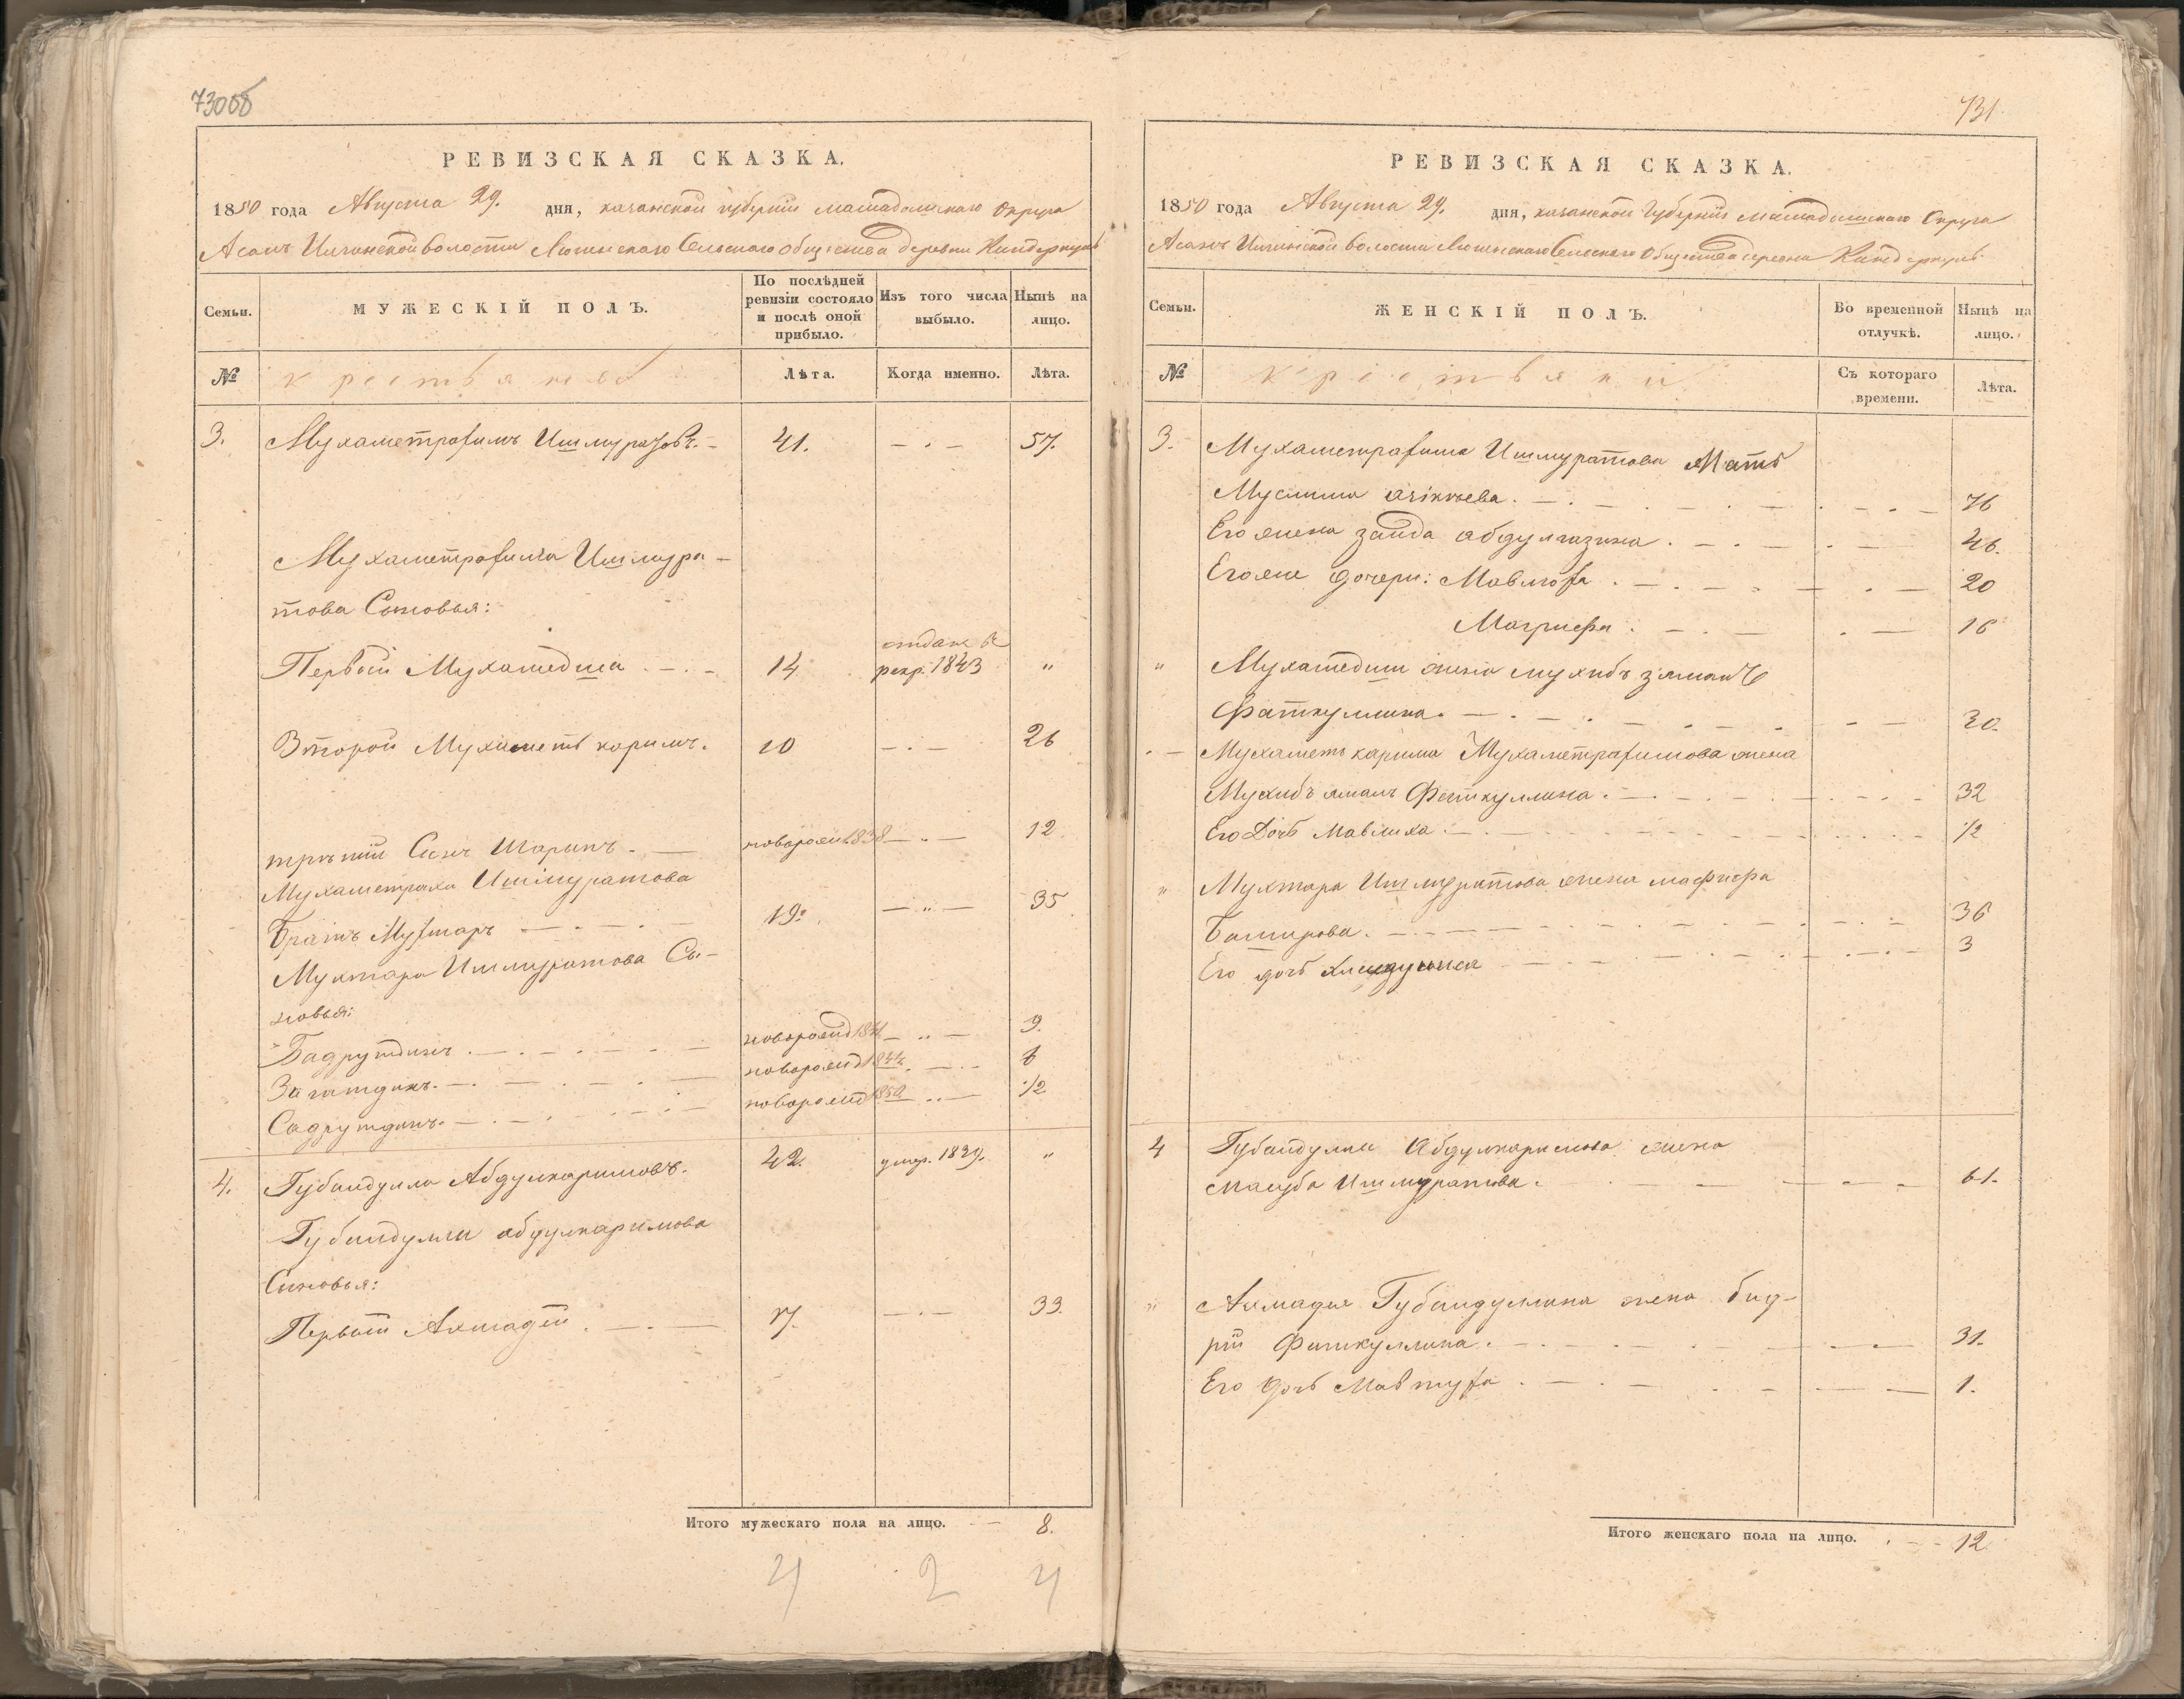 730об
РЕВИЗСКАЯ СКАЗКА.
1850 года Августа 29. дня, казанской губернии мамадышскаго Округа
Асанъ Илгинской волости Люгинскаго Сельскаго общества деревни Киндеркуль
Семьи. МУЖЕСКІЙ ПОЛЪ. По послѣдней ревизіи состояло и послѣ оной прибыло. Изъ того числа выбыло. Нынѣ на лицо.
№ крестьяновъ Лѣта. Когда именно. Лѣта.
3. Мухаметрафикъ Ишмуратовъ. 41. — . — 57.
Мухаметрафика Ишмура-
това Сыновья:
отдан в
Первый Мухаметша 14 рекр. 1843 "
Второй Мухаметь каримъ. 10 — . — 26
третій Сынъ Шарипъ. — новорожд 1838 — .. — 12
Мухаметрафика Ишмуратова
Братъ Мухтаръ 19. — .. — 35
Мухтара Ишмуратова Сы-
новья:
Бадрутдинъ новорожд 1841 — .. — 9.
новорожд 1844. 6
Садрутдинъ новорожд 1850 .. — 1/2
4. Губайдулла Абдулкаримовъ. 42. умер. 1839. "
Губайдуллы абдулкаримова
Сыновья:
Первый Ахмадей 17. — . — 33.
Итого мужескаго пола на лицо. 8.
4 2 4
731
РЕВИЗСКАЯ СКАЗКА.
1850 года Августа 29. дня, казанской Губерніи Мамадышскаго Округа
Асанъ Илгинской волости Люгинскаго Сельскаго Общества деревни Киндеркуль
Семьи. ЖЕНСКІЙ ПОЛЪ. Во временной отлучкѣ. Нынѣ на лицо.
№ Крестьянки Съ котораго времени. Лѣта.
3. Мухаметрафика Ишмуратова Мать
Муслима 76
Его жена заида абдулгазина. 46.
Его же дочери: 20
16
" Мухаметши жена мухибъ зямалъ
Фаткуллина. 30.
Мухаметь карима Мухаметрафикова жена
Мухибъ ямаль Фаткуллина. 32
Его Дочь Мавлиха 1/2
" Мухтара Ишмуратова жена
Башировa. 36
Его дочь 3
4 Губайдуллы Абдулкаримова жена
Ишмуратова. 61.
" Ахмадея Губайдуллина жена бад-
рій Фаткуллина. 31.
Его дочь 1.
Итого женскаго пола на лицо. 12